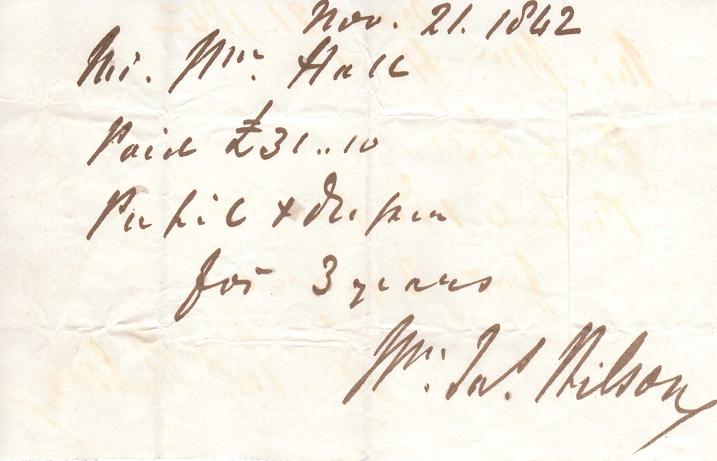 Nov. 21. 1842
Mr. Wm. Hall
Paid £31..10
Pupil & Dresser
for 3 years
Jas. Wilson